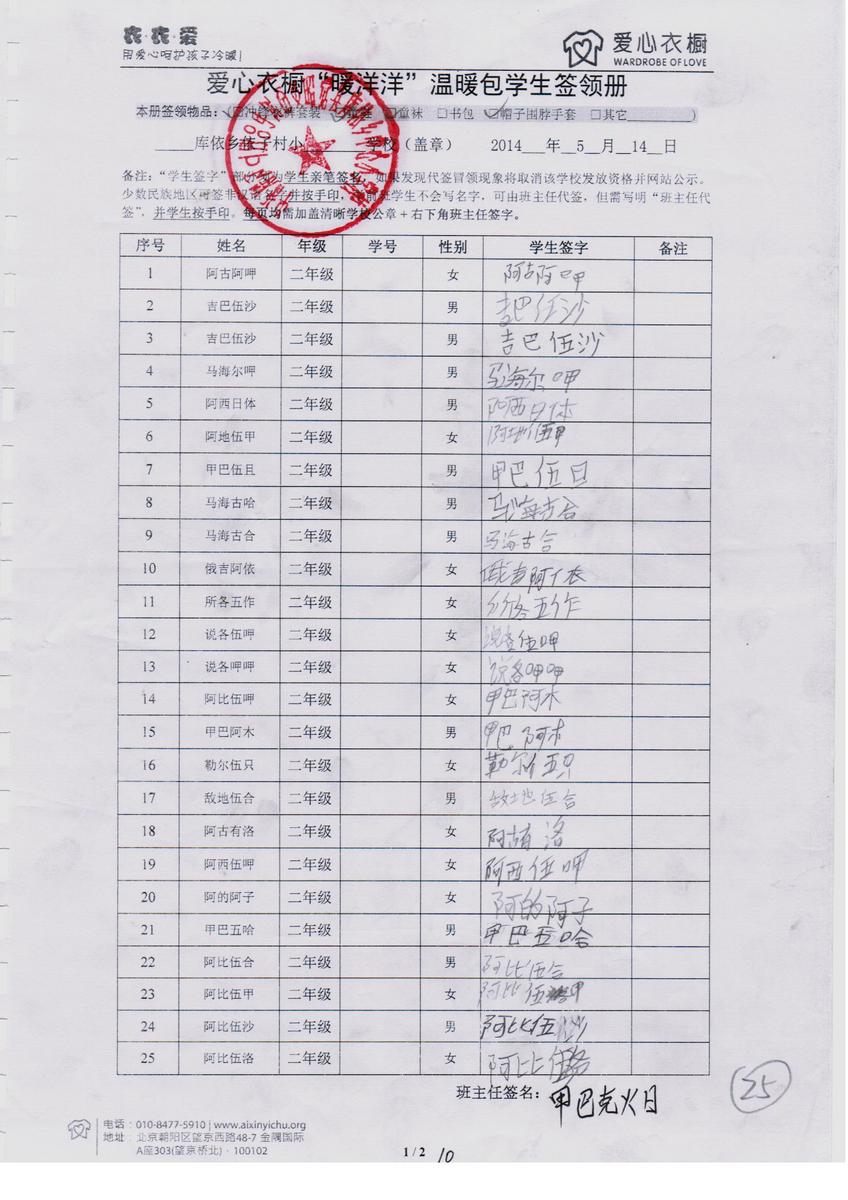 衣·衣·爱
用爱心呵护孩子冷暖!
爱心衣橱
WARDROBE OF LOVE
爱心衣橱“暖洋洋”温暖包学生签领册
本册签领物品:( 套装 童鞋 □童袜 □书包 帽子围脖手套 □其它 )
库依乡 村小 学校(盖章) 2014 年 5 月 14 日
备注:“学生签字”部分 为学生亲笔签名,如果发现代签冒领现象将取消该学校发放资格并网站公示。
少数民族地区可签非汉语名字并按手印, 前班学生不会写名字,可由班主任代签,但需写明“班主任代
签”,并学生按手印。每页均需加盖清晰学校公章+右下角班主任签字。
序号 姓名 年级 学号 性别 学生签字 备注
1 阿古阿呷 二年级 女 阿古阿呷
2 吉巴伍沙 二年级 男 吉巴伍沙
3 吉巴伍沙 二年级 男 吉巴伍沙
4 马海尔呷 二年级 男 马海尔呷
5 阿西日体 二年级 男 阿西日体
6 阿地伍甲 二年级 女 阿地伍甲
7 甲巴伍且 二年级 男 甲巴伍日
8 马海古哈 二年级 男 马海古合
9 马海古合 二年级 男 马海古合
10 俄吉阿依 二年级 女 俄吉阿依
11 所各五作 二年级 女 各五作
12 说各伍呷 二年级 女 伍呷
13 说各呷呷 二年级 女 说各呷呷
14 阿比伍呷 二年级 女 甲巴阿木
15 甲巴阿木 二年级 男 甲巴阿木
16 勒尔伍只 二年级 女 勒尔伍只
17 敌地伍合 二年级 男 地伍合
18 阿古有洛 二年级 女 阿古有洛
19 阿西伍呷 二年级 女 阿西伍呷
20 阿的阿子 二年级 女 阿的阿子
21 甲巴五哈 二年级 男 甲巴五哈
22 阿比伍合 二年级 男 阿比伍合
23 阿比伍甲 二年级 女 阿比伍甲
24 阿比伍沙 二年级 男 阿比伍沙
25 阿比伍洛 二年级 女 阿比伍洛
班主任签名:甲巴克火日
25
电话:010-8477-5910 | www.aixinyichu.org
地址:北京朝阳区望京西路48-7 金隅国际
A座303(望京桥北)·100102
1 / 2 10